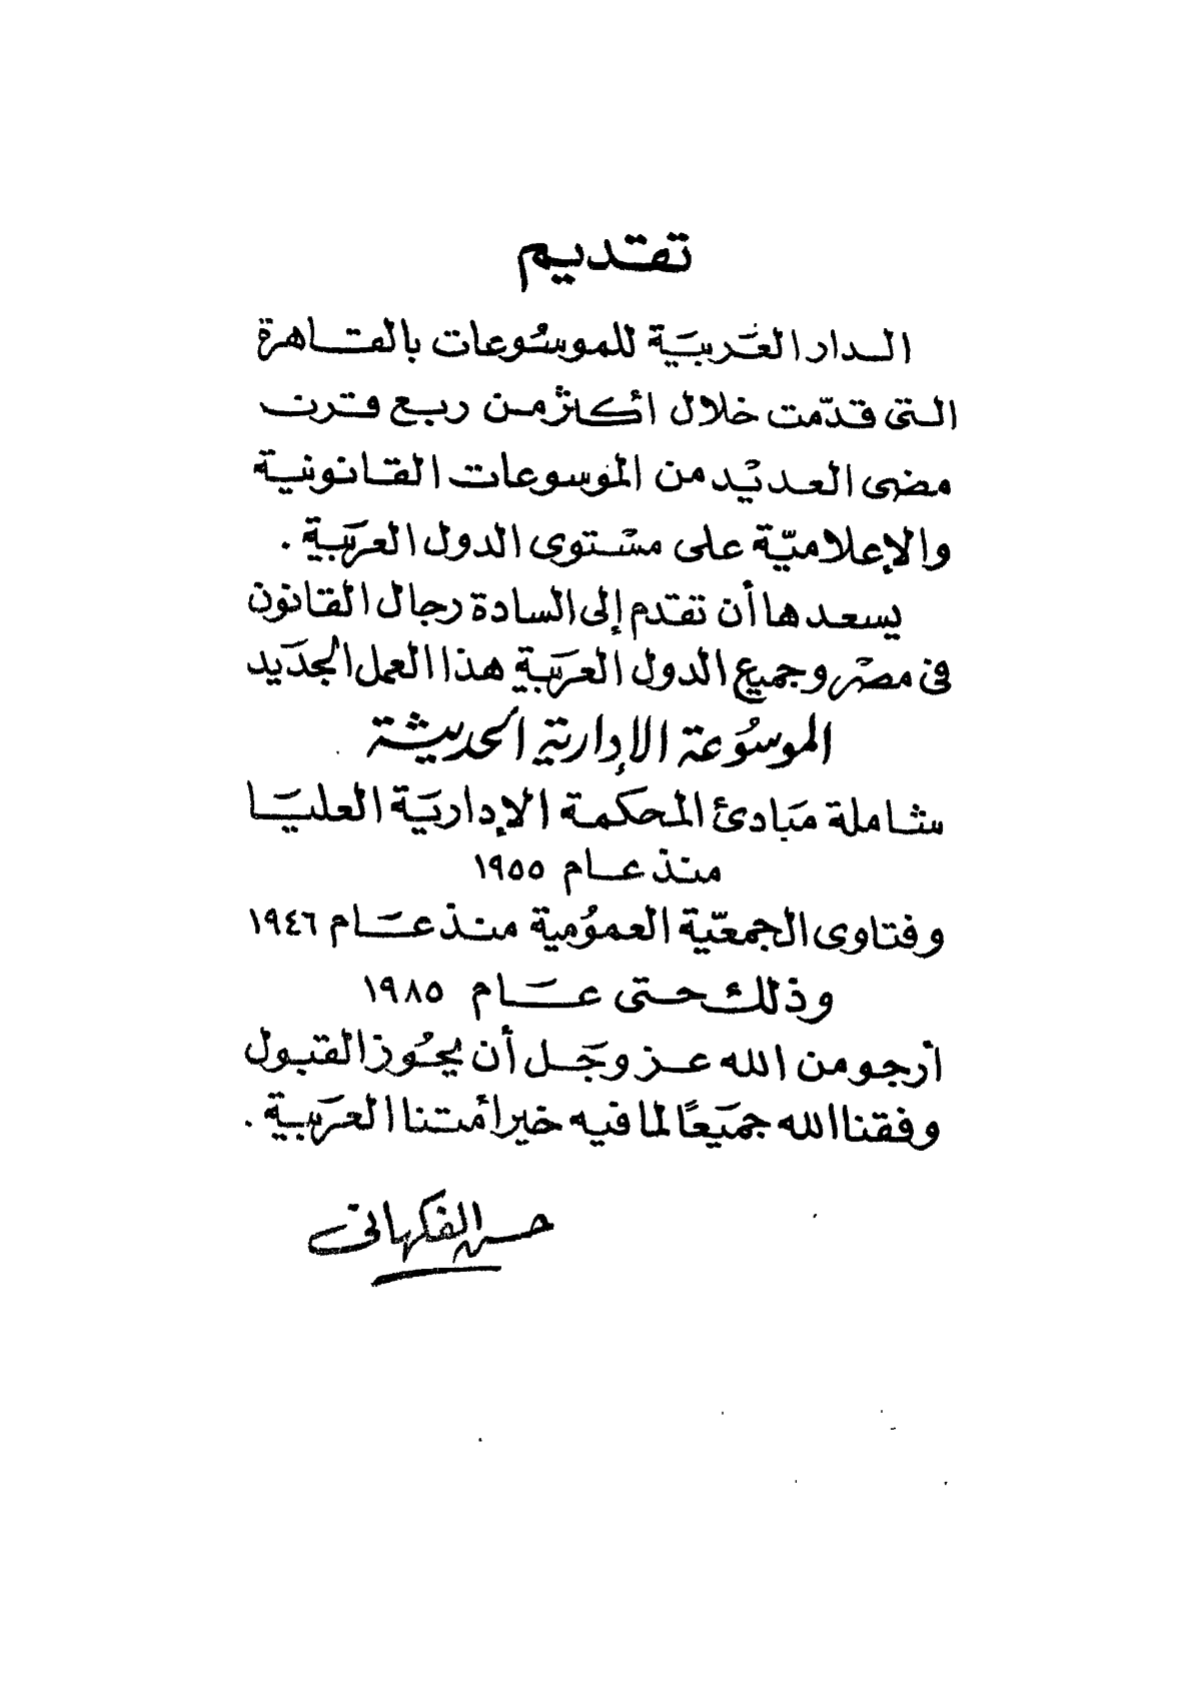 تقديم
الدار العربية للموسوعات بالقاهرة
التى قدّمت خلال أكثر من ربع قرن
مضى العديد من الموسوعات القانونية
والإعلاميّة على مستوى الدول العربية .
يسعدها أن تقدم إلى السادة رجال القانون
فى مصر وجميع الدول العربية هذا العمل الجديد
الموسُوعة الإدارية الحديثة
شاملة مَبادئ المحكمة الإداريَة العليَا
منذ عام ١٩٥٥
وفتاوى الجمعيّة العمُومية منذ عَام ١٩٤٦
وذلك حتى عَام ١٩٨٥
أرجو من الله عز وجَل أن يحُوز القبول
وفقنا الله جميَعًا لما فيه خير أمتنا العرَبية .
حسن الفكهانى